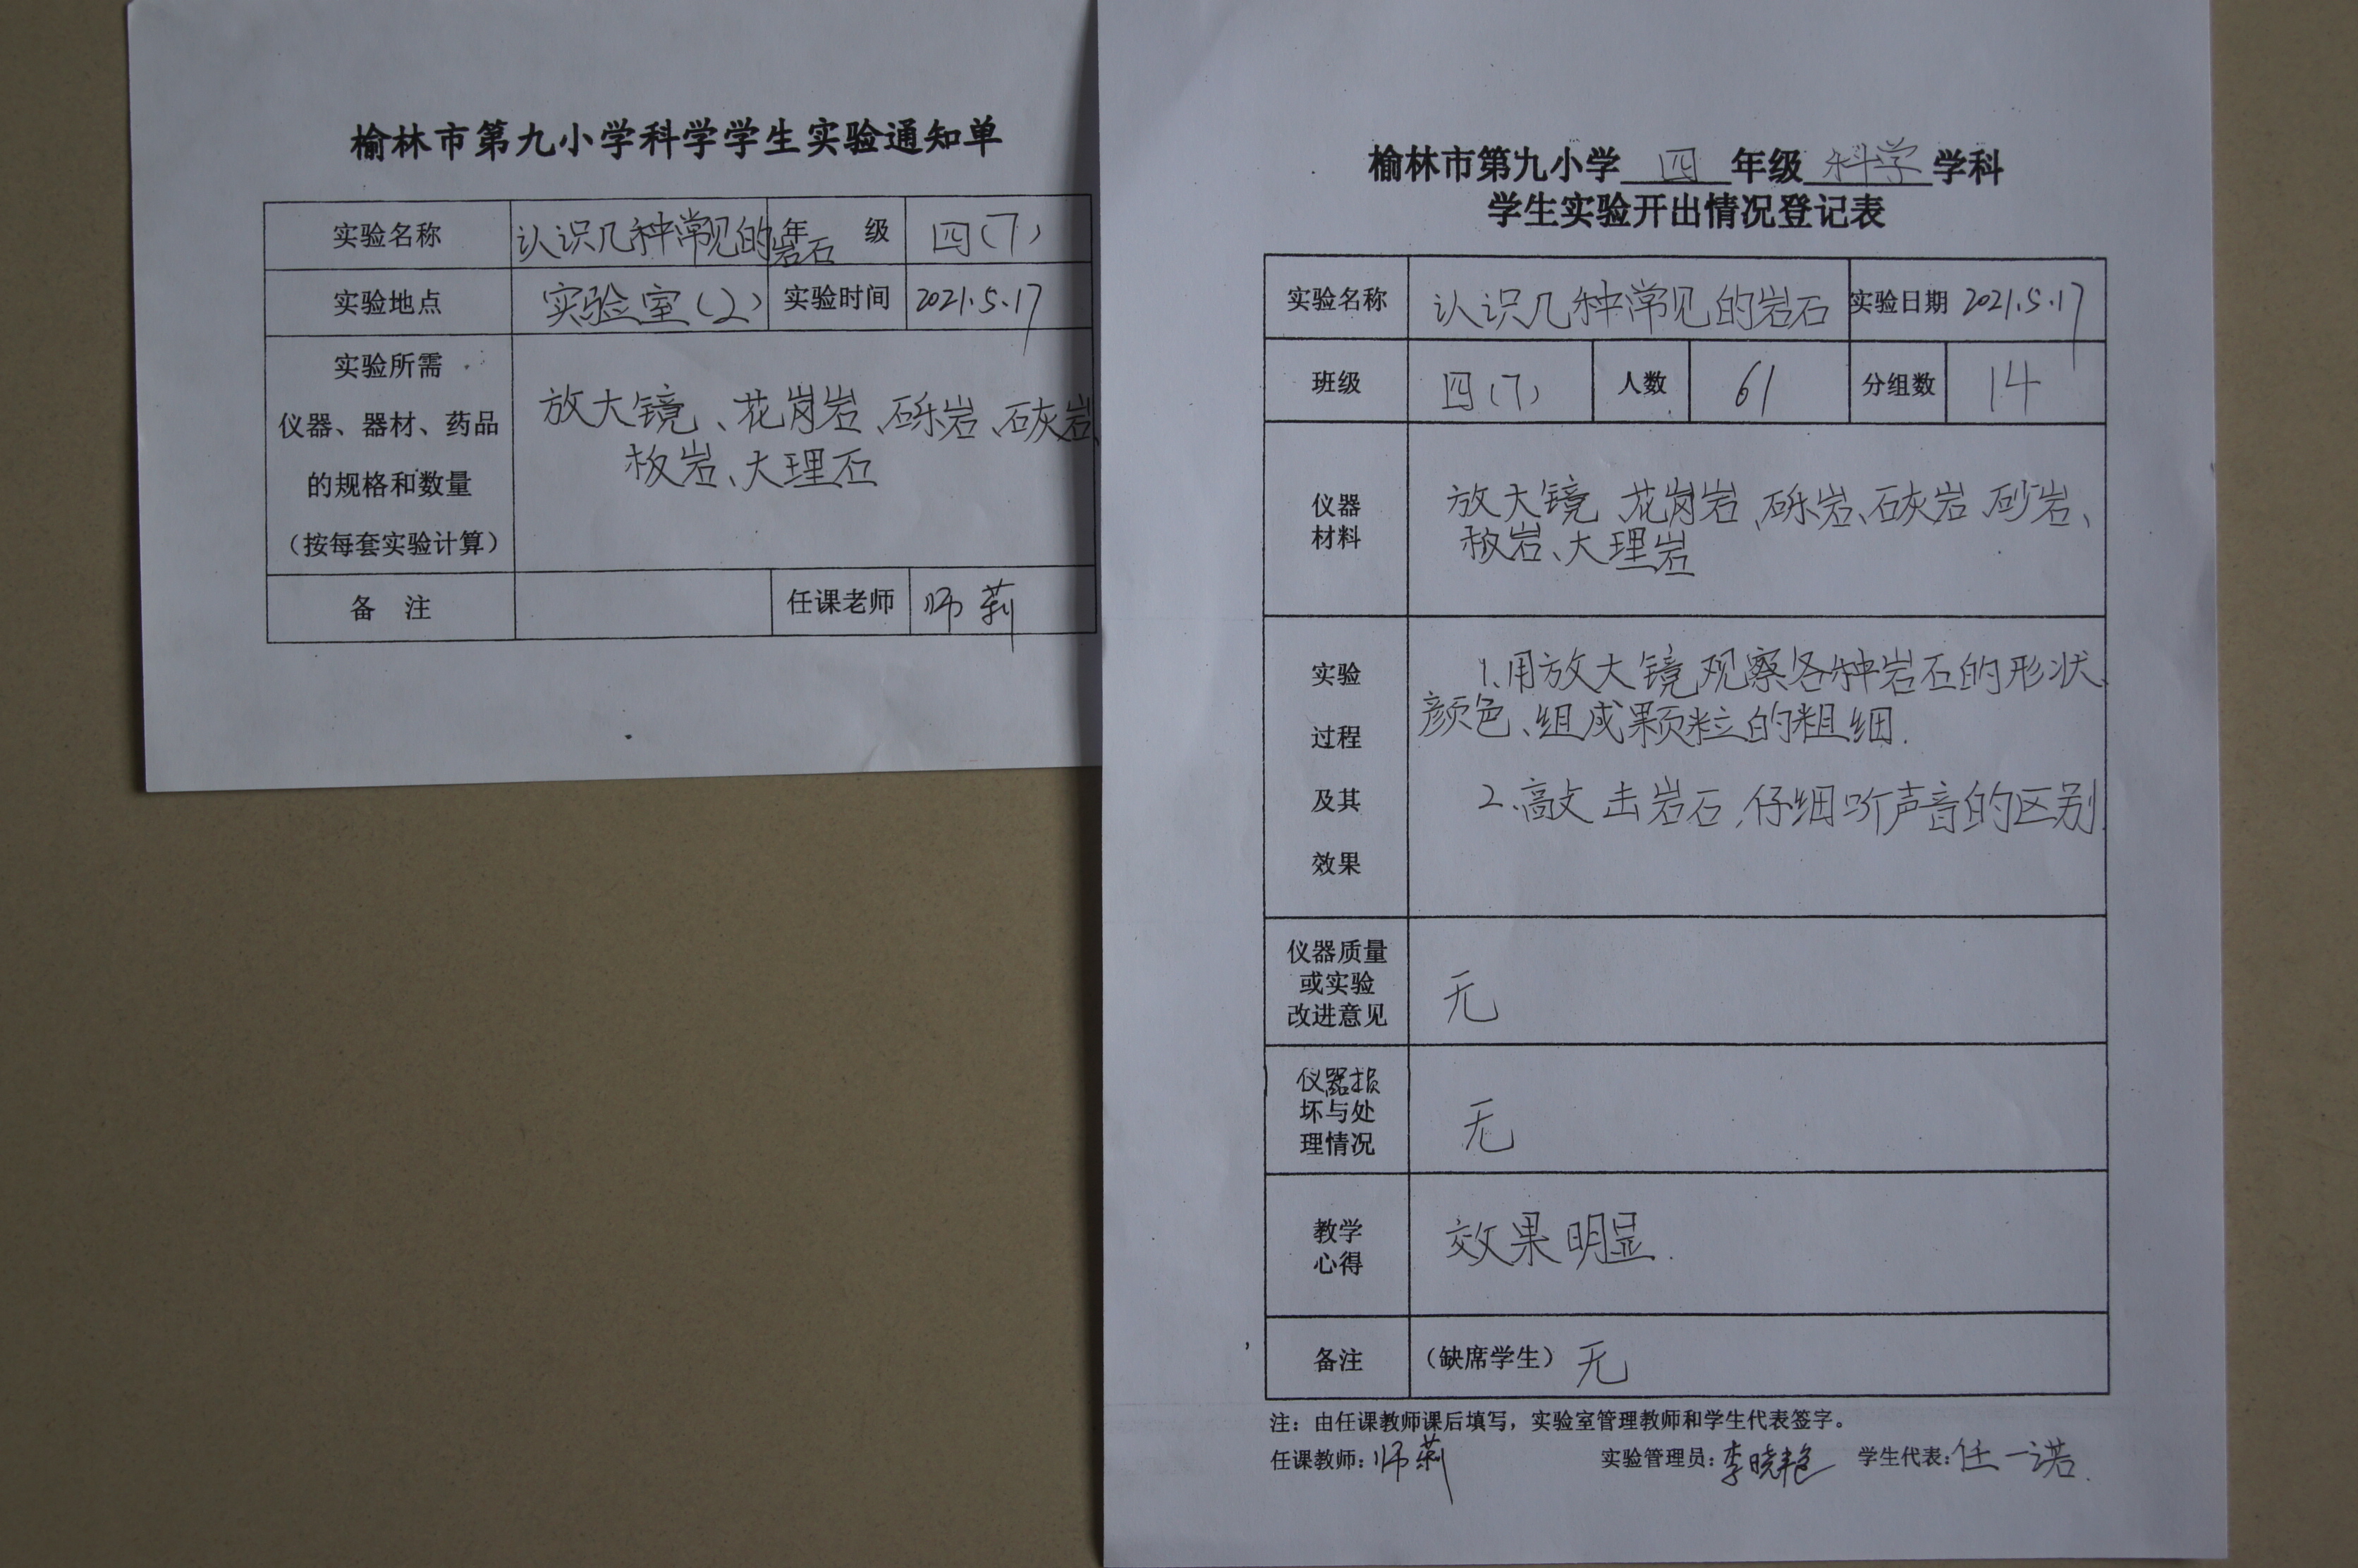 榆林市第九小学科学学生实验通知单
实验名称 认识几种常见的岩石 年 级 四(7)
实验地点 实验室(2) 实验时间 2021.5.17
实验所需
仪器、器材、药品
的规格和数量
(按每套实验计算)
放大镜、花岗岩、砾岩、石灰岩、
板岩、大理石
备 注 任课老师 师莉
榆林市第九小学 四 年级 科学 学科
学生实验开出情况登记表
实验名称 认识几种常见的岩石 实验日期 2021.5.17
班级 四(7) 人数 61 分组数 14
仪器
材料
放大镜、花岗岩、砾岩、石灰岩、砂岩、
板岩、大理岩
实验
过程
及其
效果
1.用放大镜观察各种岩石的形状、
颜色、组成颗粒的粗细.
2.敲击岩石,仔细听声音的区别.
仪器质量
或实验
改进意见
无
仪器损
坏与处
理情况
无
教学
心得
效果明显.
备注 (缺席学生) 无
注:由任课教师课后填写,实验室管理教师和学生代表签字。
任课教师:师莉 实验管理员:李晓艳 学生代表:任一诺.